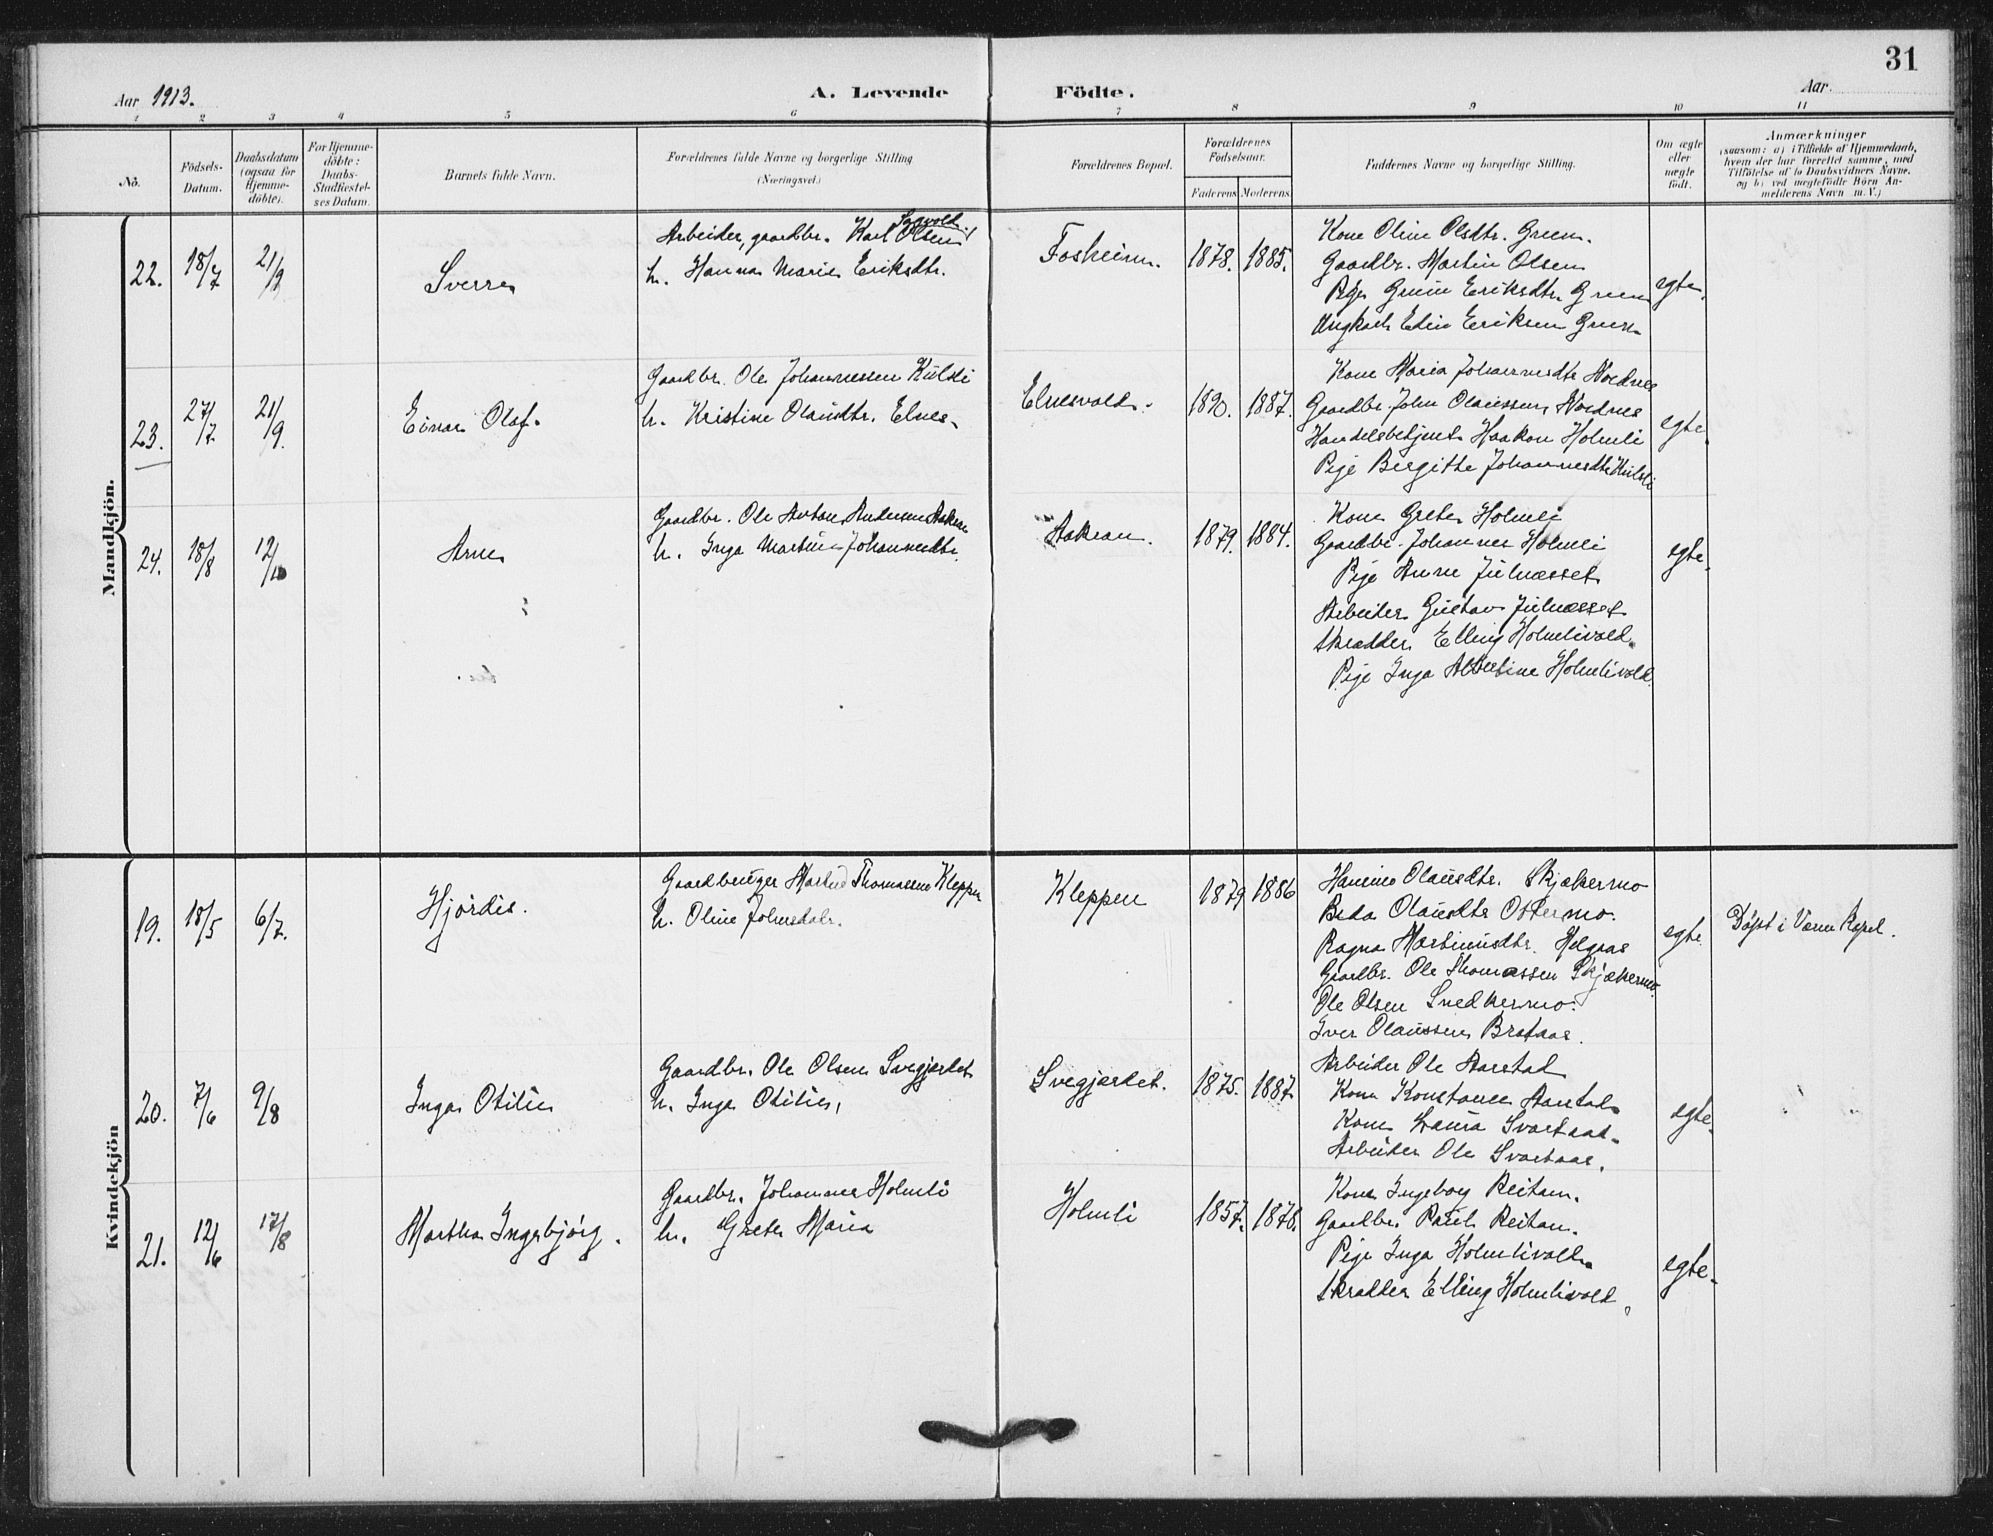 31
Aar 1913.
A. Levende Födte.
Aar
1 2 3 4 5 6 7 8 9 10 11
No.
Födsels-
Datum.
Daabsdatum
(ogsaa for
Hjemme-
döbte).
For Hjemme-
döbte:
Daabs-
Stadfæstel-
ses Datum.
Barnets fulde Navn.
Forældrenes fulde Navne og borgerlige Stilling
(Næringsvei.)
Forældrenes Bopæl.
Forældrenes
Födselsaar.
Faderens Moderens
Faddernes Navne og borgerlige Stilling.
Om ægte
eller
uægte
födt.
Anmærkninger
(saasom: a) i Tilfælde af Hjemmedaab,
hvem der har forrettet samme, med
Tilföielse af to Daabsvidners Navne.
og b) ved uægtefödte Börn An-
melderens Navn m. V.)
Mandkjön.
22.
18/7
21/9
Sverre
Arbeider, gaardbr. Karl Olsen
h. Hanna Marie Eriksdtr.
Foskeim.
1878. 1885.
Kone Oline Olsdtr. Green.
Gaardbr. Martin Olsen
Pige Eriksdtr. Green
Ungkarl Edin Eriksen Green
egte.
23.
27/7
21/9.
Einar Olaf.
Gaardbr. Ole Johannessen Kulsli
h. Kristine Olausdtr. Elnes.
Elnesvold.
1890. 1887.
Kone Maria Johannesdtr Nordnes
Gaardbr. John Olaussen Nordnes
Handelsbetjent Haakon Holmli
Pige Birgitte Johannesdtr Kulsli
egte.
24.
18/8
12/10
Arne
Gaardbr. Ole Anton Andersen Aakran
h. Inga Martine Johannesdtr.
Aakran.
1879. 1884.
Kone Grete Holmli
Gaardbr. Johannes Holmli
Pige Anne Julnesset
Arbeider Gustav Julnesset
Skrædder Elling Holmlivold.
Pige Inga Albertine Holmlivold.
egte.
Kvindekjön
19.
18/5
6/7.
Hjördis.
Gaardbruger Thomassen Kleppen
h. Oline Johnsdtr.
Kleppen
1879 1886
Olausdtr. Skjækermo
Beda Olausdtr Ostermo.
Ragna Martinusdtr. Helgaas
Gaardbr. Ole Thomassen Skjækermo.
Ole Olsen Snedkermo.
Iver Olaussen Brataas.
egte
Döpt i Være Kapel.
20.
7/6
9/8
Inga Otilie
Gaardbr. Ole Olsen Svegjerdet
h. Inga Otilie,
Svegjerdet.
1875. 1887.
Arbeider Ole Aarstad
Kone Konstance Aarstad
Kone Laura Svartaas.
Arbeider Ole Svartaas.
egte.
21.
12/6
17/8
Martha Ingebjörg.
Gaardbr. Johannes Holmli
h. Grete Maria
Holmli
1857. 1878.
Kone Ingeborg Reitan.
Gaardbr. Paul Reitan.
Pige Inga Holmlivold.
Skrædder Elling Holmlivold.
egte.